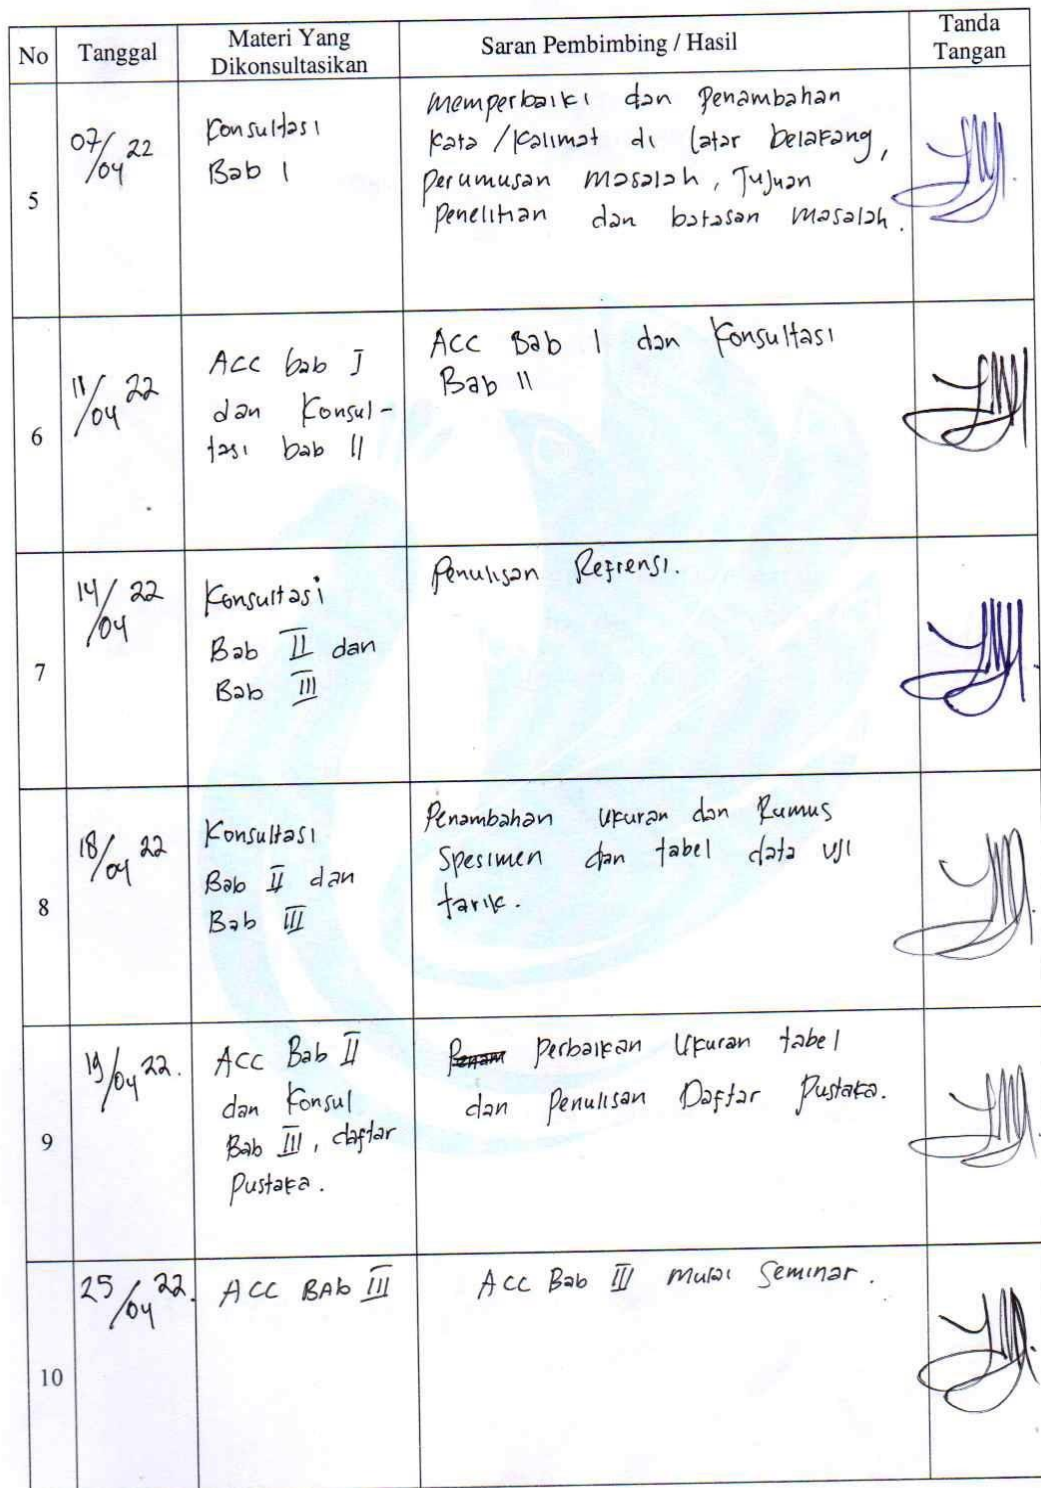 No
Tanggal
Materi Yang
Dikonsultasikan
Saran Pembimbing / Hasil
Tanda
Tangan
5
07/04 22
Konsultasi
Bab I
Memperbaiki dan Penambahan
Kata / Kalimat di latar belakang,
Perumusan masalah, Tujuan
Penelitian dan batasan masalah.
6
11/04 22
ACC bab I
dan Konsul-
tasi bab II
ACC Bab I dan Konsultasi
Bab II
7
14/04 22
Konsultasi
Bab II dan
Bab III
Penulisan Refrensi.
8
18/04 22
Konsultasi
Bab II dan
Bab III
Penambahan Ukuran dan Rumus
Spesimen dan tabel data uji
tarik.
9
19/04 22.
ACC Bab II
dan Konsul
Bab III, daftar
Pustaka.
Penam Perbaikan Ukuran tabel
dan Penulisan Daftar Pustaka.
10
25/04 22.
ACC BAb III
ACC Bab III Mulai Seminar.